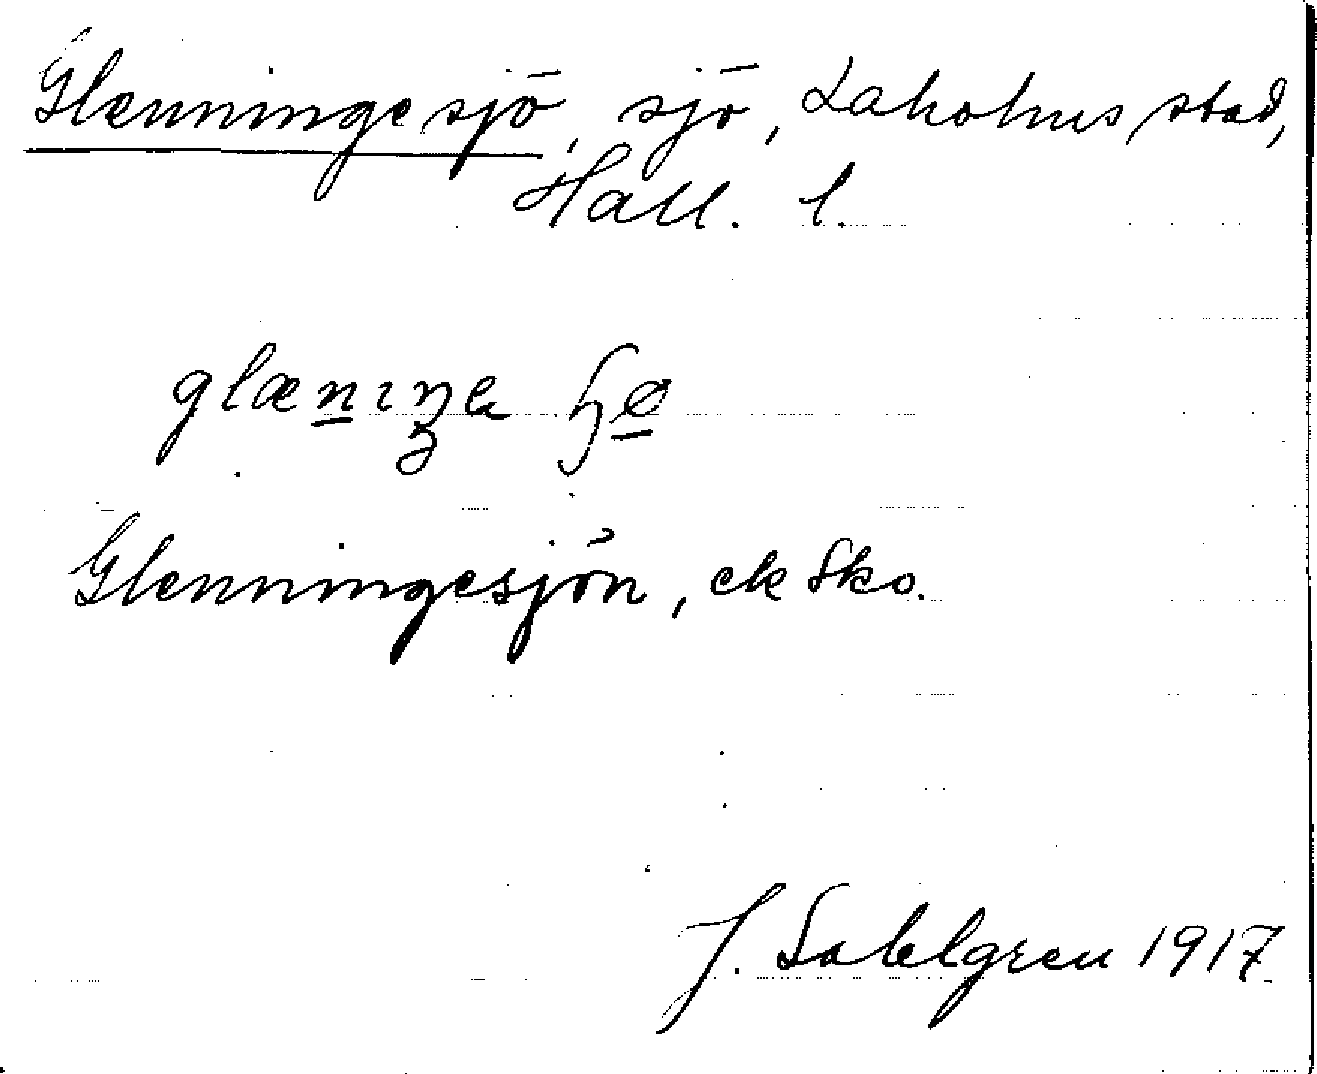 Glenningesjö, sjö, Laholms stad,
Hall. l.
Glenningesjön, ek Sko.
J. Sahlgren 1917